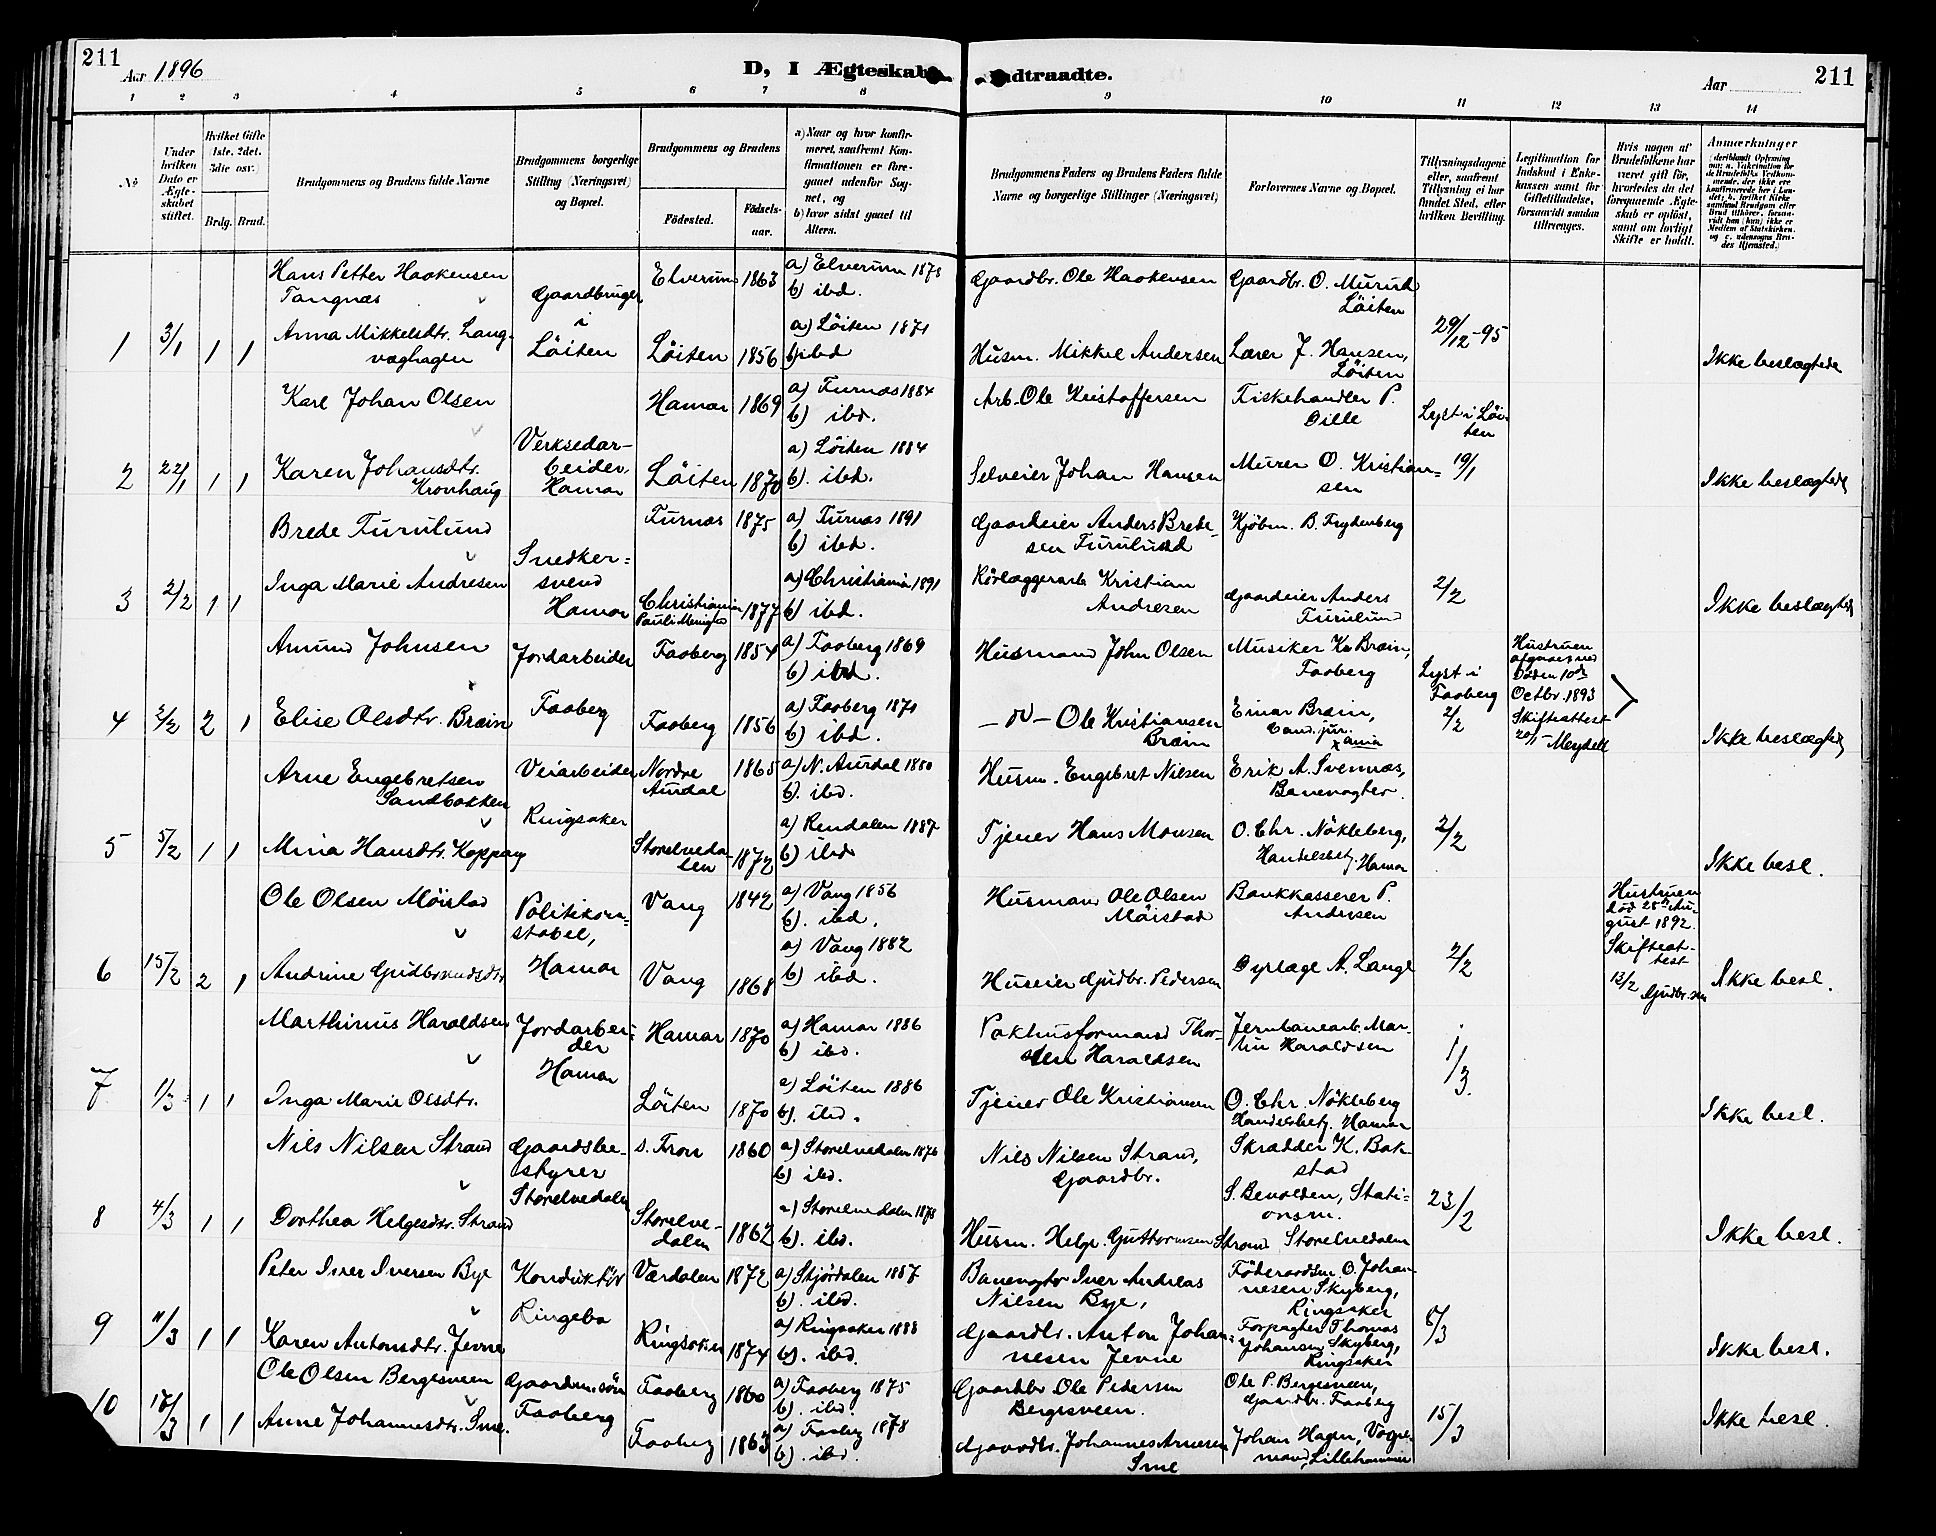 211
Aar 1896
D, I Ægteskab Indtraadte.
Aar
211
1 2 3 4 5 6 7 8 9 10 11 12 13 14
No
Under hvilken Dato er Ægteskabet stiftet.
Hvilket Gifte 1ste, 2det, 3die osv.)
Brdg. Brud.
Brudgommens og Brudens fulde Navne
Brudgommens borgerlige Stilling (Næringsvei) og Bopæl.
Brudgommens og Brudens
Fødested.
Fødselsaar.
a) Naar og hvor konfirmeret, saafremt Konfirmationen er foregaaet udenfor Sognet, og
b) hvor sidst gaaet til Alters.
Brudgommens Faders og Brudens Faders fulde Navne og borgerlige Stillinger (Næringsvei)
Forlovernes Navne og Bopæl.
Tillysningsdagene eller, saafremt Tillysning ei har fundet Sted, efter hvilken Bevilling.
Legitimation for Indskud i Enkekassen samt for Giftetilladelse, forsaavidt saadan tiltrænges.
Hvis nogen af Brudefolkene har været gift før, hvorledes da det foregaaende Ægteskab er opløst, samt om lovligt Skifte er holdt.
Anmærkninger
1 3/1 1 1
Hans Petter Haakensen
Tangnæs
Gaardbruger
i
Löiten
Elverum 1863
a) Elverum 1878
b) ibd.
Gaardbr. Ole Haakensen
Gaardbr. O. Murud
Löiten
29/12-95
Anna Mikkelsdtr. Lang-
væghagen
Löiten 1856
a) Löiten 1871
b) ibd
Husm. Mikkel Andersen
Lærer J. Hansen,
Löiten
Ikke beslægtede
2 22/1 1 1
Karl Johan Olsen
Verksedar-
beider,
Hamar
Hamar 1869
a) Furnæs 1884
b) ibd.
Arb. Ole Kristoffersen
Fiskehandler P.
Dille
Lyst i Löi-
ten
19/1
Karen Johansdtr.
Kronhaug
Löiten 1870
a) Löiten 1884
b). ibd.
Selveier Johan Hansen
Murer O. Kristian=
sen
Ikke beslægtede
3 2/2 1 1
Brede Furulund
Snedker=
svend
Hamar
Furnæs 1875
a) Furnæs 1891
b) ibd.
Gaardeier Anders Brede-
sen Furulund
Kjöbm. B. Frydenberg
2/2
Inga Marie Andresen
Christiania
1877
a) Christiania 1891
b) ibd.
Rörlæggerarb. Kristian
Andresen
Gaardeier Anders
Furulund
Ikke beslægtede
4 2/2 2 1
Amund Johnsen
Jordarbeider
Faaberg
Faaberg 1854
a) Faaberg 1869
b) ibd.
Husmand John Olsen
Musiker K. Bræin,
Faaberg
Lyst i
Faaberg
2/2
Hustruen
afgaaet ved
Döden 10de
Octbr. 1893
Skifteattest
20/1 Meydell
Elise Olsdtr. Bræin
Faaberg 1856
a) Faaberg 1871
b). ibd.
- do - Ole Kristiansen
Bræin
Einar Bræin,
Cand. jur.
Xania
Ikke beslægtede
5 5/2 1 1
Arne Engebretsen
Sandbakken
Veiarbeider
Ringsaker
Nordre
Aurdal
1865
a) N. Aurdal 1880
b). ibd.
Husm. Engebret Nilsen
Erik A. Svennæs,
Banevogter.
2/2
Mina Hansdtr. Koppang
Storelvedal-
len 1872
a) Rendalen 1887
b) ibd
Tjener Hans Monsen
O. Chr. Nökleberg,
Handelsbetj. Hamar
Ikke besl.
6 15/2 2 1
Ole Olsen Möistad
Politikon-
stabel,
Hamar
Vang 1842
a) Vang 1856
b). ibd.
Husmand Ole Olsen
Möistad
Bankkasserer P.
Andersen
2/2
Hustruen
död 25de Au-
gust 1892.
Skifteat-
test
13/2 Gudbr.sen
Andrine Gudbrandsdtr.
Vang 1868
a) Vang 1882
b) ibd.
Huseier Gudbr. Pedersen
Dyrlæge A. Lange
Ikke besl.
7 1/3 1 1
Marthinius Haraldsen
Jordarbei-
der
Hamar
Hamar 1870
a) Hamar 1886
b) ibd.
Pakhusformand Thor-
sten Haraldsen
Jernbanearb. Mar-
tin Haraldsen
1/3.
Inga Marie Olsdtr.
Löiten 1870
a) Löiten 1886
b). ibd.
Tjener Ole Kristiansen
O. Chr. Nökleberg
Handelsbetj. Hamar
Ikke besl.
8 4/3 1 1
Nils Nilsen Strand
Gaardsbe-
styrer
Storelvedalen
S. Fron 1860
a) Storelvedalen 1876
b) ibd.
Nils Nilsen Strand,
Gaardbr.
Skrædder K. Bak-
stad
23/2
Dorthea Helgesdtr. Strand
Storelve-
dalen 1862
a) Storelvedalen 1878
b). ibd.
Husm. Helge Guttormsen Strand
S. Benolden, Stati-
onsm.
Storelvedalen
Ikke besl.
9 11/3 1 1
Peter Iver Iversen Bye
Konduktör
Ringebo
Værdalen 1872
a) Stjördalen 1887
b). ibd.
Banevogter Iver Andreas
Nilsen Bye,
Föderaadsm. O. Johan-
nesen Skyberg,
Ringsaker
8/3
Karen Antonsdtr. Jevne
Ringsaker 1874
a) Ringsaker 1888
b). ibd.
Gaardbr. Anton Johan=
nesen Jevne
Forpagter Thomas
Johansen Skyberg,
Ringsaker
Ikke besl.
10 18/3 1 1
Ole Olsen Bergesveen
Gaardm.sön
Faaberg
Faaberg 1860
a) Faaberg 1875
b). ibd.
Gaardbr. Ole Pedersen
Bergesveen.
Ole P. Bergesveen,
Gaardbr. Faaberg
15/3
Anne Johannesdtr. Sme.
Faaberg 1863
a) Faaberg 1878
b). ibd.
Gaardbr. Johannes Arnesen
Sme
Johan Hagen, Vogn-
mand, Lillehammer
Ikke besl.